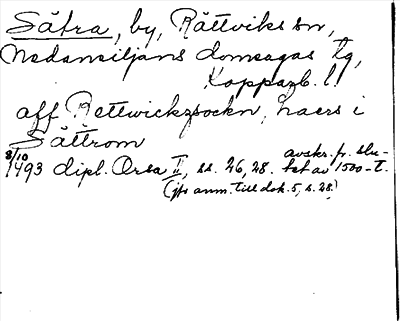 Såtra, by, Rättviks sn,
Nedansiljans domsagas tg,
Kopparb. l.
aff Rettwickzsockn, haers i
Såttrom
8/10 avskr. fr. slu-
1493 dipl. Orsa II, ss. 26, 28. tet av 1500-t.
(jfr anm. till dok. 5, s. 28.)